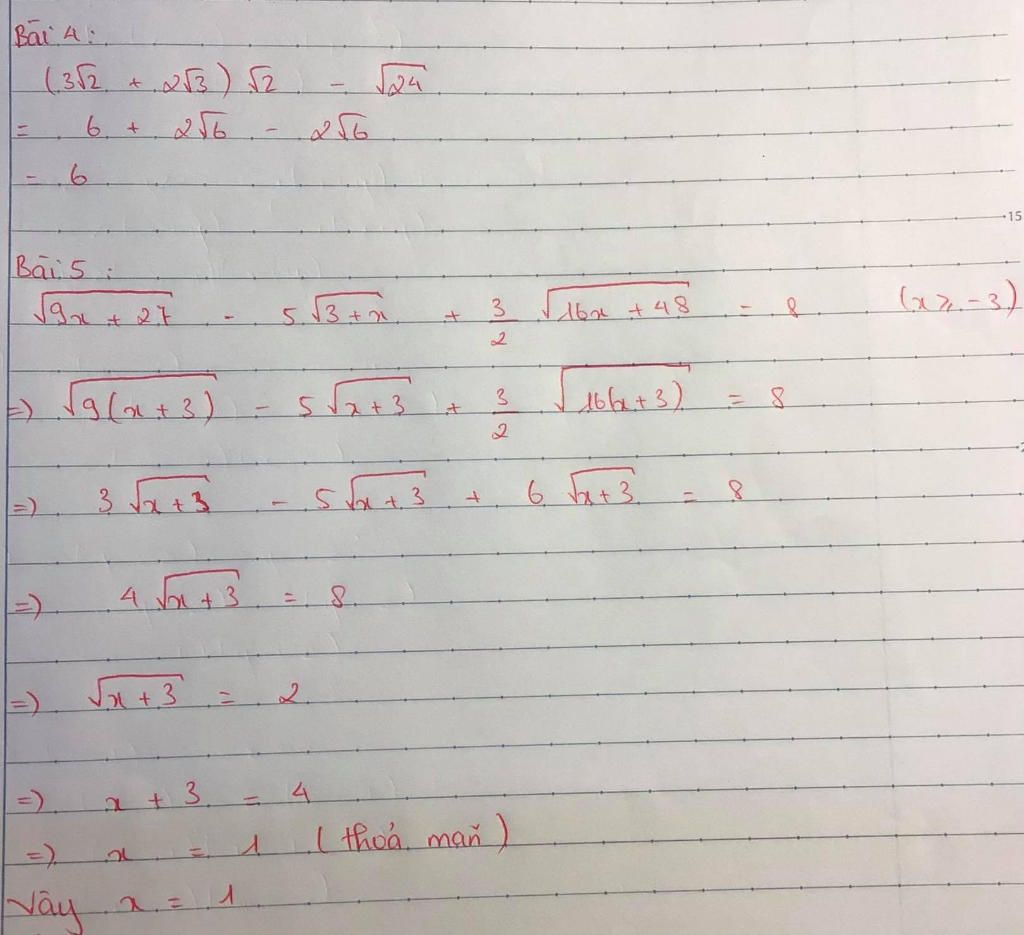 Bài 4:
(3√2 + 2√3) √2 - √24
= 6 + 2√6 - 2√6
= 6
15
Bài 5:
√(9x + 27) - 5√(3 + x) + 3/2 √(16x + 48) = 8 (x ⩾ -3)
=> √(9(x + 3)) - 5√(x + 3) + 3/2 √(16(x + 3)) = 8
=> 3√(x + 3) - 5√(x + 3) + 6√(x + 3) = 8
=> 4√(x + 3) = 8
=> √(x + 3) = 2
=> x + 3 = 4
=> x = 1 (thoả mãn)
Vậy x = 1